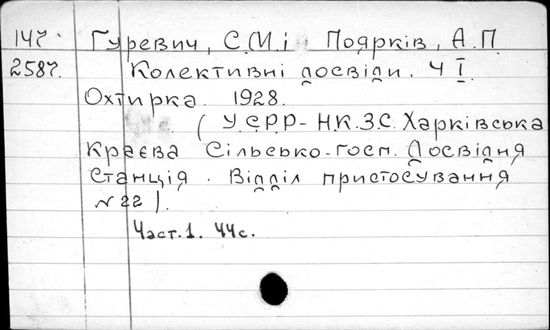 147. Гуревич, С.М. і Поярків, А.П
2587. Колективні досвіди. Ч І.
Охтирка. 1928.
( У.С.Р.Р- Н.К.З.С. Харківська
Краєва Сільсько-госп. Досвідня
Станція. Відділ пристосування
N 22 ).
Част.1. 44с.